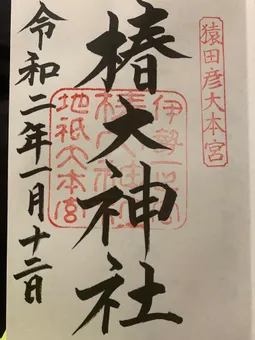 猿田彦大本宮
椿大神社
伊勢一之宮
地祇大本宮
令和二年一月十二日